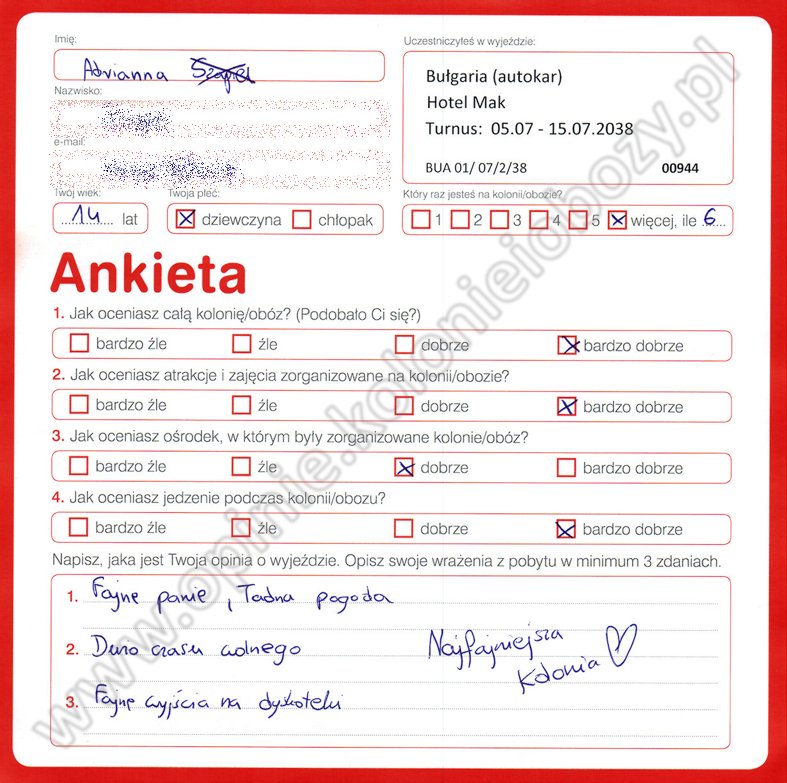 Imię:
Adrianna
Nazwisko:
e-mail:
Twój wiek:
14 lat
Twoja płeć:
dziewczyna chłopak
Uczestniczyłeś w wyjeździe:
Bułgaria (autokar)
Hotel Mak
Turnus: 05.07 - 15.07.2038
BUA 01/ 07/2/38 00944
Który raz jesteś na kolonii/obozie?
1 2 3 4 5 więcej, ile 6
Ankieta
1. Jak oceniasz całą kolonię/obóz? (Podobało Ci się?)
bardzo źle źle dobrze bardzo dobrze
2. Jak oceniasz atrakcje i zajęcia zorganizowane na kolonii/obozie?
bardzo źle źle dobrze bardzo dobrze
3. Jak oceniasz ośrodek, w którym były zorganizowane kolonie/obóz?
bardzo źle źle dobrze bardzo dobrze
4. Jak oceniasz jedzenie podczas kolonii/obozu?
bardzo źle źle dobrze bardzo dobrze
Napisz, jaka jest Twoja opinia o wyjeździe. Opisz swoje wrażenia z pobytu w minimum 3 zdaniach.
1. Fajne panie, Ładna pogoda
2. Dużo czasu wolnego
3. Fajne wyjścia na dyskoteki
Najfajniejsza
kolonia ♡
www.opinie.kolonieiobozy.pl